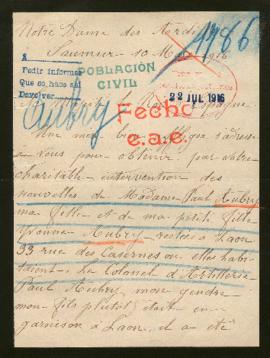 Notre Dame des Ardi
Saumur 10 Mai 1916
1786
A
Pedir informes
Que so, haos sal
Devolver
POBLACIÓN
CIVIL
22 JUL 1916
Fecho
e.a.e.
Aubry
Une mère bien
Vous pour obtenir, par votre
charitable intervention des
nouvelles de Madame Paul Aubry
ma fille et de ma petite fille
Yvonne Aubry restées à Laon
33 rue des Casernes où elles habi
taient. Le Colonel d'Artillerie
Paul Aubry mon gendre
mon fils plutôt était en
garnison à Laon, il a été